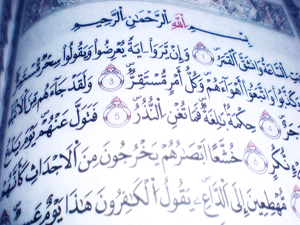 بِسْمِ اللَّهِ الرَّحْمَٰنِ الرَّحِيمِ
السَّاعَةُ وَانشَقَّ الْقَمَرُ ۝ وَإِن يَرَوْا آيَةً يُعْرِضُوا وَيَقُولُوا سِحْرٌ
وَاتَّبَعُوا أَهْوَاءَهُمْ وَكُلُّ أَمْرٍ مُّسْتَقِرٌّ ۝ وَلَقَدْ جَاءَهُم مِّنَ
حِكْمَةٌ بَالِغَةٌ فَمَا تُغْنِ النُّذُرُ ۝ فَتَوَلَّ عَنْهُمْ يَوْمَ
نُّكُرٍ ۝ خُشَّعًا أَبْصَارُهُمْ يَخْرُجُونَ مِنَ الْأَجْدَاثِ كَأَنَّهُمْ
مُّهْطِعِينَ إِلَى الدَّاعِ يَقُولُ الْكَافِرُونَ هَٰذَا يَوْمٌ عَسِرٌ